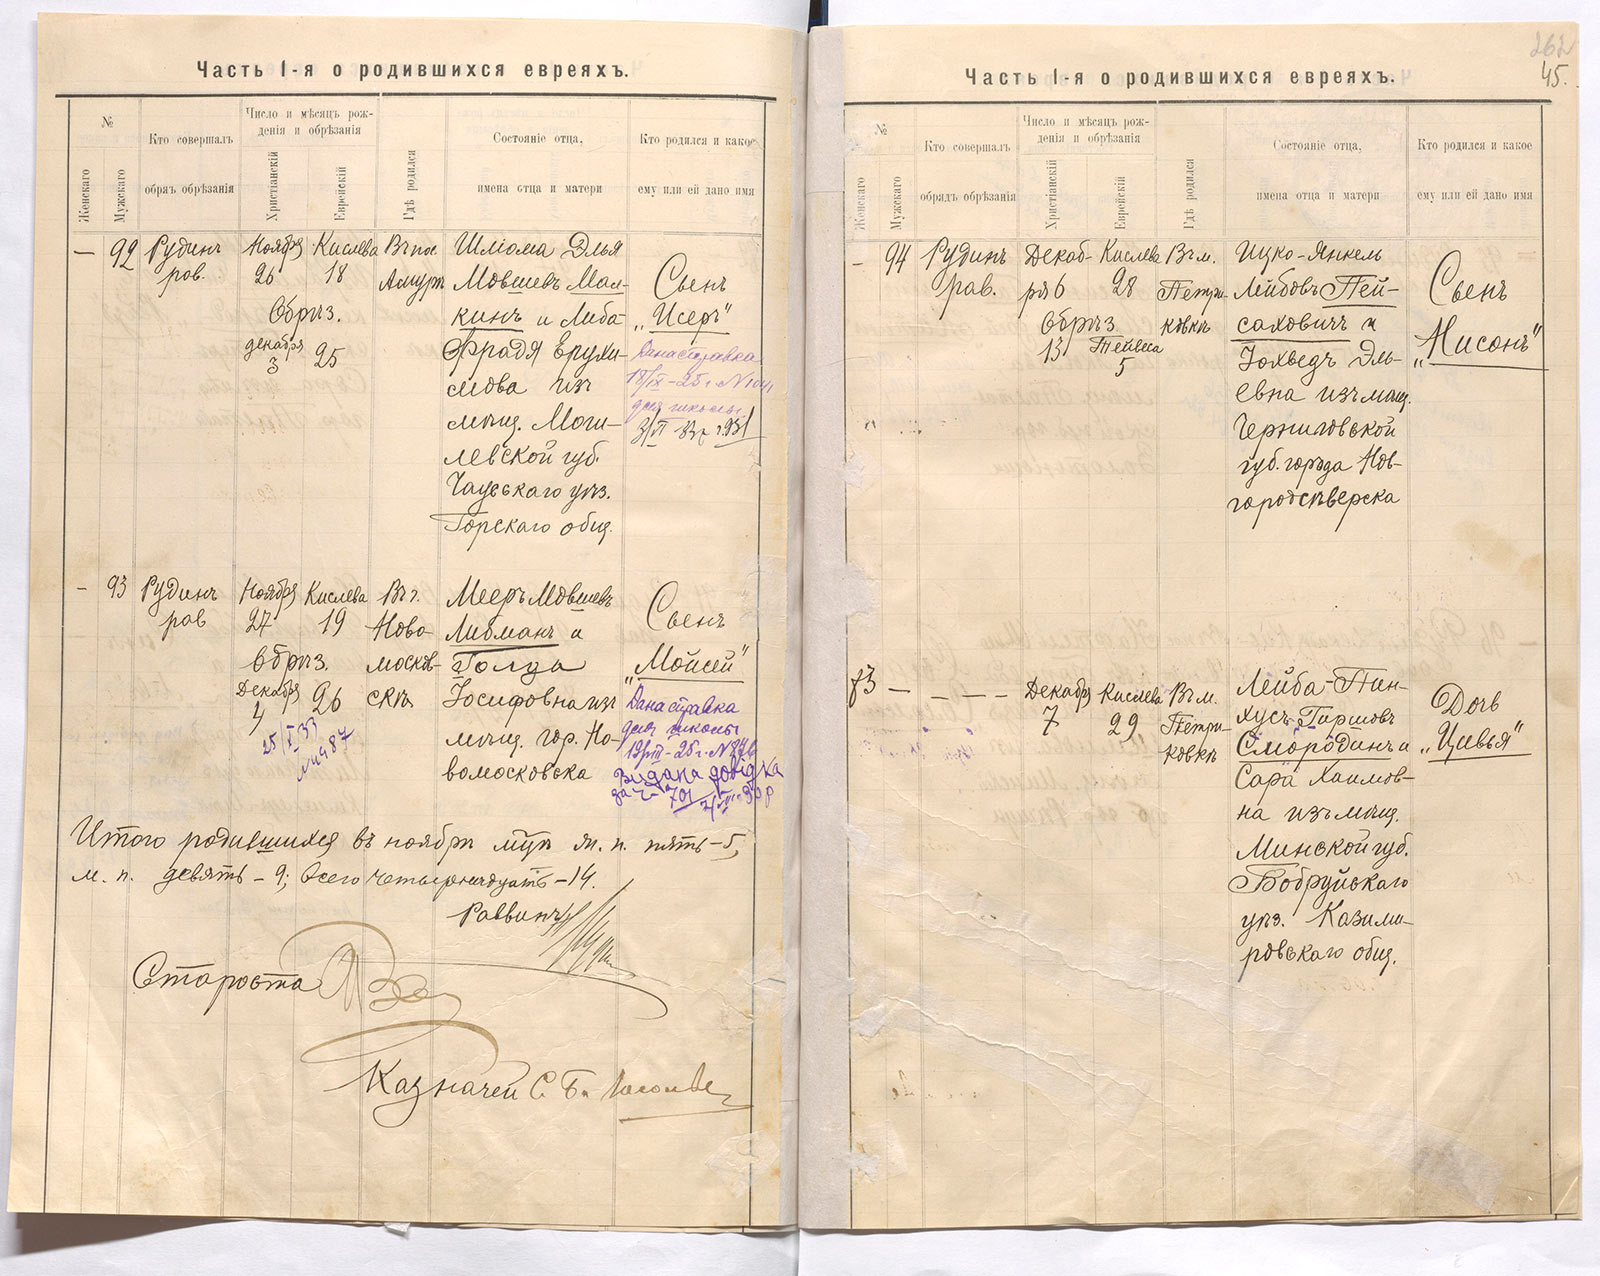 Часть I-я о родившихся евреяхъ.
№
Женскаго
Мужскаго
Кто совершалъ
обрядъ обрѣзанія
Число и мѣсяцъ рож-
денія и обрѣзанія
Христіанскій
Еврейскій
Гдѣ родился
Состояніе отца,
имена отца и матери
Кто родился и какое
ему или ей дано имя
— 92
Рудинъ
рав.
Ноября
26
Кислева
18
Обрѣз.
декабря
3
25
Въ пос.
Амурѣ
Шлома Элья
Мовшевъ Мал-
кинъ и Либа-
Фрадя Ерухи-
мова изъ
мѣщ. Моги-
левской губ.
Чаусьскаго уѣз.
Горскаго общ.
Сынъ
„Исеръ"
Дана справка
18/IX-25 г. №
для школы
— 93
Рудинъ
рав
Ноября
27
Кислева
19
Обрѣз.
Декабря
4
26
25/I 33
№ 4487
Въ г.
Ново-
москов-
скѣ
Мееръ Мовшевъ
Либманъ и
Голда
Іосифовна изъ
мѣщ. гор. Но-
вомосковска
Сынъ
„Мойсей"
Дана справка
для школы
Видана довідка
за ч. 701
Итого родившихся въ ноябрѣ мѣц. ж. п. пять – 5,
м. п. девять – 9; всего четырнадцать – 14.
Раввинъ
Староста
Казначей С. Б.
262
45.
Часть I-я о родившихся евреяхъ.
№
Женскаго
Мужскаго
Кто совершалъ
обрядъ обрѣзанія
Число и мѣсяцъ рож-
денія и обрѣзанія
Христіанскій
Еврейскій
Гдѣ родился
Состояніе отца,
имена отца и матери
Кто родился и какое
ему или ей дано имя
— 94
Рудинъ
рав.
Декаб-
ря 6
Кислева
28
Обрѣз
13
Тейвеса
5
Въ м.
Петри-
ковкѣ
Ицко-Янкель
Лейбовъ Пей-
саховичъ и
Іохведъ Эль-
евна изъ мѣщ.
Черниговской
губ. города Нов-
городсѣверска
Сынъ
„Нисонъ"
73 — — — —
Декабря
7
Кислева
29
Въ м.
Петри-
ковкѣ
Лейба-Пин-
хусъ Гиршовъ
Смородинъ и
Сара Хаимов-
на изъ мѣщ.
Минской губ.
Бобруйскаго
уѣз. Казими-
ровскаго общ.
Дочь
„Цивья"